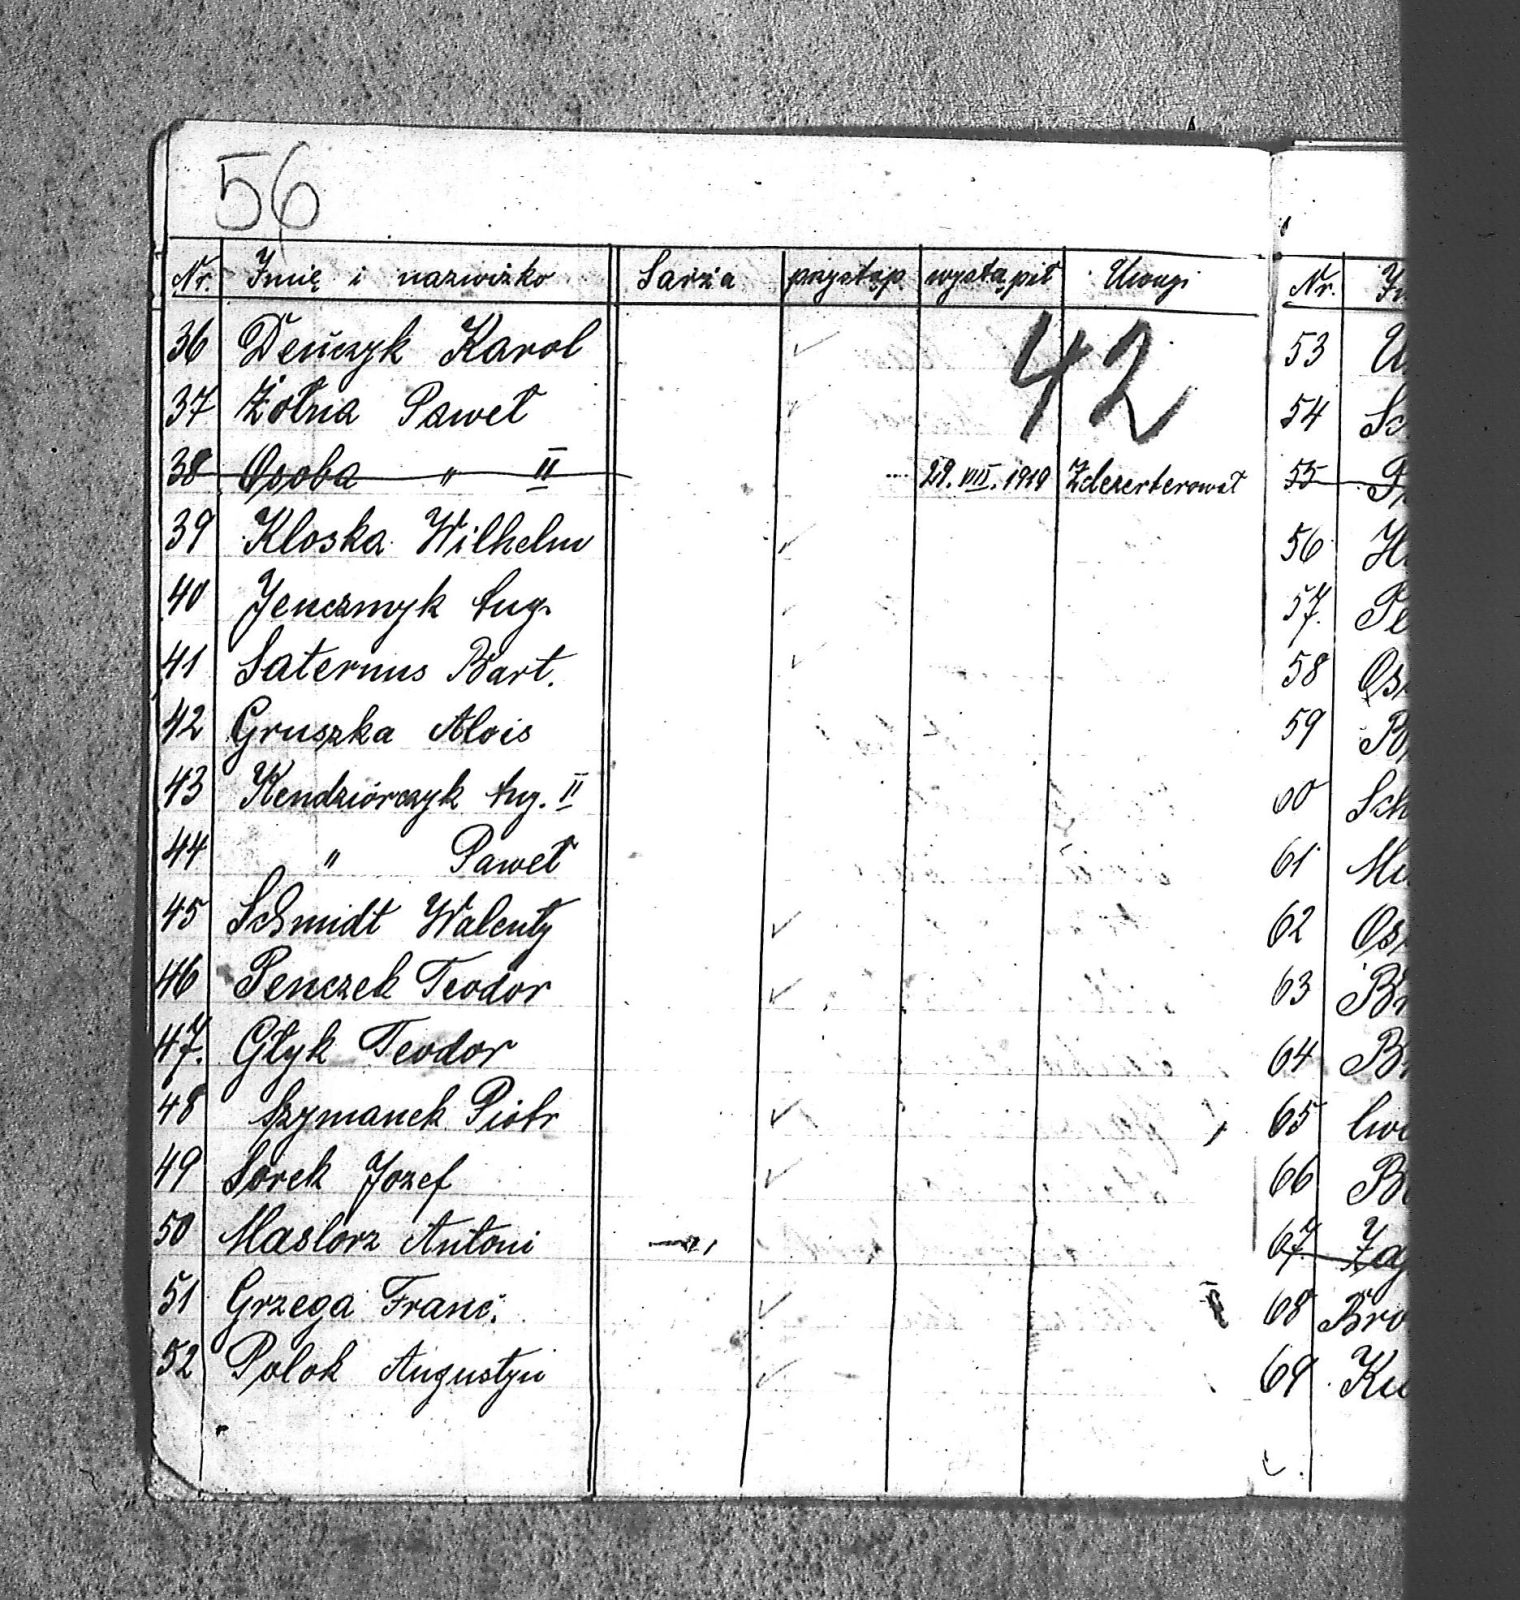 56
Nr. Imię i nazwisko Sarża przystąp wystąpił Uwagi
42
36 Deńczyk Karol
37 Żołna Paweł
38 Osoba " II 29. VIII. 1919 Zdezerterował
39 Kloska Wilhelm
40 Jenczmyk Aug.
41 Saternus Bart.
42 Gruszka Alois
43 Kendziórczyk Aug. II
44 " Paweł
45 Schmidt Walenty
46 Penczek Teodor
47. Głyk Teodor
48 Szymanek Piotr
49 Sorek Jozef
50 Maslorz Antoni
51 Grzega Franc.
52 Polok Augustyn
Nr.
53
54
55
56
57.
58
59
60
61
62
63
64
65
66
67
68
69